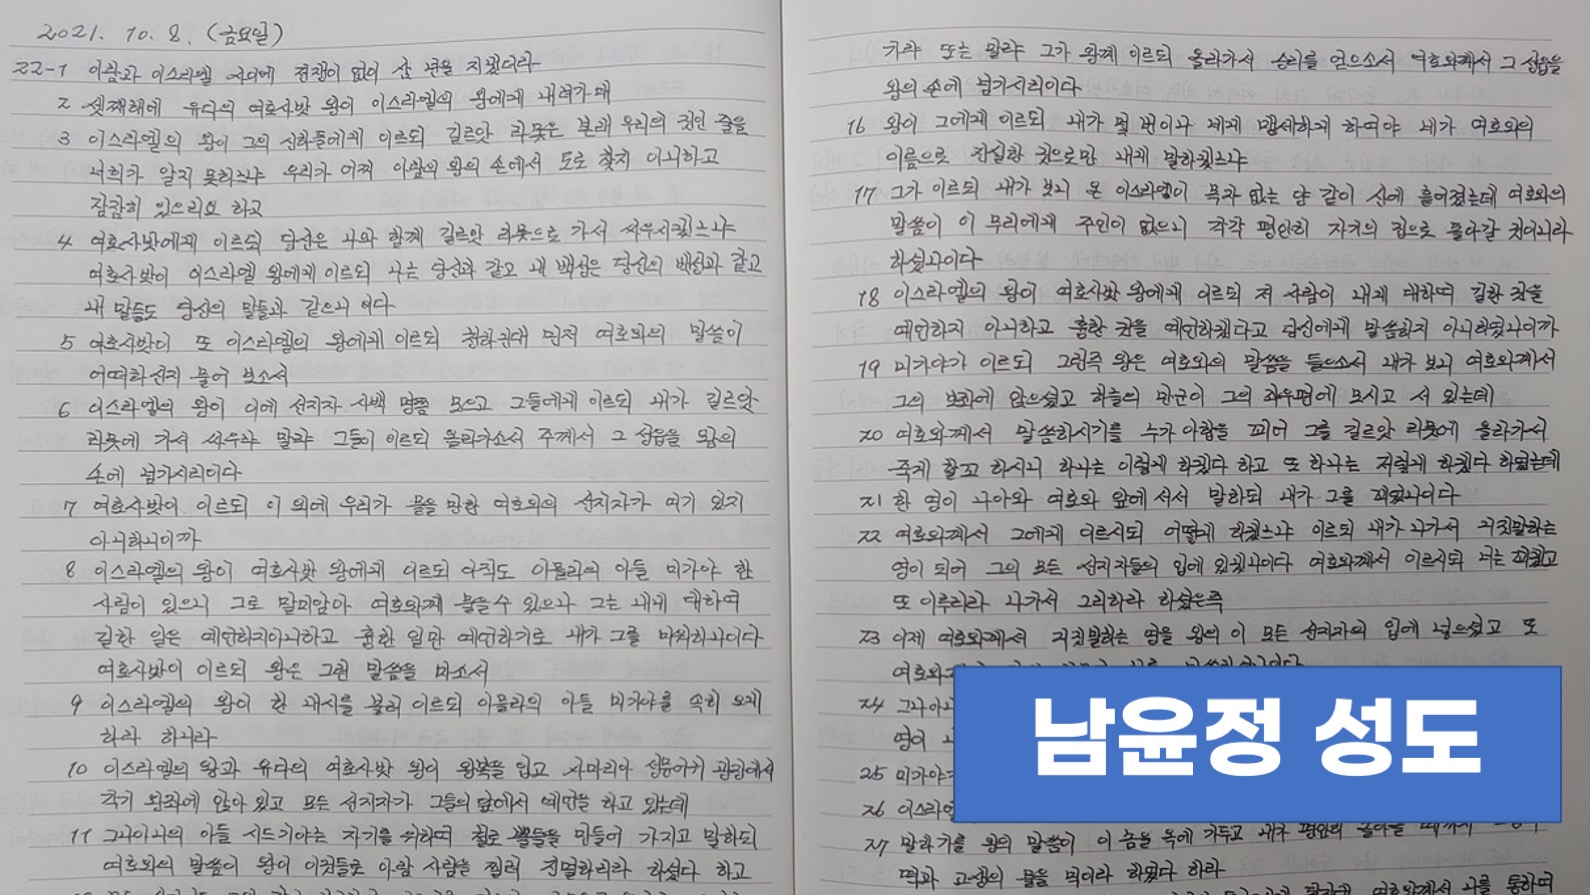 2021. 10. 8. (금요일)
22-1 아람과 이스라엘 사이에 전쟁이 없이 삼 년을 지냈더라
2 셋째해에 유다의 여호사밧 왕이 이스라엘의 왕에게 내려가매
3 이스라엘의 왕이 그의 신하들에게 이르되 길르앗 라못은 본래 우리의 것인 줄을
너희가 알지 못하느냐 우리가 어찌 아람의 왕의 손에서 도로 찾지 아니하고
잠잠히 있으리요 하고
4 여호사밧에게 이르되 당신은 나와 함께 길르앗 라못으로 가서 싸우시겠느냐
여호사밧이 이스라엘 왕에게 이르되 나는 당신과 같고 내 백성은 당신의 백성과 같고
내 말들도 당신의 말들과 같으니 이다
5 여호사밧이 또 이스라엘의 왕에게 이르되 청하건대 먼저 여호와의 말씀이
어떠하신지 물어 보소서
6 이스라엘의 왕이 이에 선지자 사백 명쯤 모으고 그들에게 이르되 내가 길르앗
라못에 가서 싸우랴 말랴 그들이 이르되 올라가소서 주께서 그 성읍을 왕의
손에 넘기시리이다
7 여호사밧이 이르되 이 외에 우리가 물을 만한 여호와의 선지자가 여기 있지
아니하니이까
8 이스라엘의 왕이 여호사밧 왕에게 이르되 아직도 이믈라의 아들 미가야 한
사람이 있으니 그로 말미암아 여호와께 물을 수 있으나 그는 내게 대하여
길한 일은 예언하지아니하고 흉한 일만 예언하기로 내가 그를 미워하나이다
여호사밧이 이르되 왕은 그런 말씀을 마소서
9 이스라엘의 왕이 한 내시를 불러 이르되 이믈라의 아들 미가야를 속히 오게
하라 하니라
10 이스라엘의 왕과 유다의 여호사밧 왕이 왕복을 입고 사마리아 성문어귀 광장에서
각기 왕좌에 앉아 있고 모든 선지자가 그들의 앞에서 예언을 하고 있는데
11 그나아나의 아들 시드기야는 자기를 위하여 철로 뿔들을 만들어 가지고 말하되
여호와의 말씀이 왕이 이것들로 아람 사람을 찔러 진멸하리라 하셨다 하고
가랴 또는 말랴 그가 왕께 이르되 올라가서 승리를 얻으소서 여호와께서 그 성읍을
왕의 손에 넘기시리이다
16 왕이 그에게 이르되 내가 몇 번이나 네게 맹세하게 하여야 네가 여호와의
이름으로 진실한 것으로만 내게 말하겠느냐
17 그가 이르되 내가 보니 온 이스라엘이 목자 없는 양 같이 산에 흩어졌는데 여호와의
말씀이 이 무리에게 주인이 없으니 각각 평안히 자기의 집으로 돌아갈 것이니라
하셨나이다
18 이스라엘의 왕이 여호사밧 왕에게 이르되 저 사람이 내게 대하여 길한 것을
예언하지 아니하고 흉한 것을 예언하겠다고 당신에게 말씀하지 아니하였나이까
19 미가야가 이르되 그런즉 왕은 여호와의 말씀을 들으소서 내가 보니 여호와께서
그의 보좌에 앉으셨고 하늘의 만군이 그의 좌우편에 모시고 서 있는데
20 여호와께서 말씀하시기를 누가 아합을 꾀어 그를 길르앗 라못에 올라가서
죽게 할꼬 하시니 하나는 이렇게 하겠다 하고 또 하나는 저렇게 하겠다 하였는데
21 한 영이 나아와 여호와 앞에 서서 말하되 내가 그를 꾀겠나이다
22 여호와께서 그에게 이르시되 어떻게 하겠느냐 이르되 내가 나가서 거짓말하는
영이 되어 그의 모든 선지자들의 입에 있겠나이다 여호와께서 이르시되 너는 꾀겠고
또 이루리라 나가서 그리하라 하셨은즉
23 이제 여호와께서 거짓말하는 영을 왕의 이 모든 선지자의 입에 넣으셨고 또
여호와
24 그나아
영이
25 미가야
26 이스라엘
27 말하기를 왕의 말씀이 이 놈을 옥에 가두고 내가 평안히 돌아올 때까지
떡과 고생의 물을 먹이라 하였다 하라
남윤정 성도